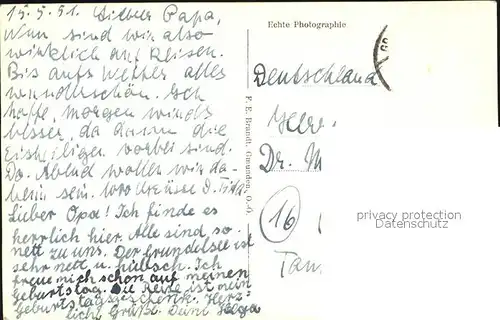 15.5.51. Lieber Papa,
Nun sind wir also
wirklich auf Reisen.
Bis aufs Wetter alles
wunderschön. Ich
hoffe, morgen wirds
besser, da dann die
Eisheiligen vorbei sind.
Do. Abend wollen wir da-
heim sein.
Lieber Opa! Ich finde es
herrlich hier. Alle sind so
nett zu uns. Der Grundelsee ist
sehr nett u. hübsch. Ich
freue mich schon auf meinen
Geburtstag. Die Reise ist mein
Geburtstagsgeschenk. Herz-
liche Grüße Deine Helga
Echte Photographie
F. E. Brandt, Gmunden, O.-Ö.
Deutschland
Herr
Dr. M
16
Tau
privacy protection
Datenschutz